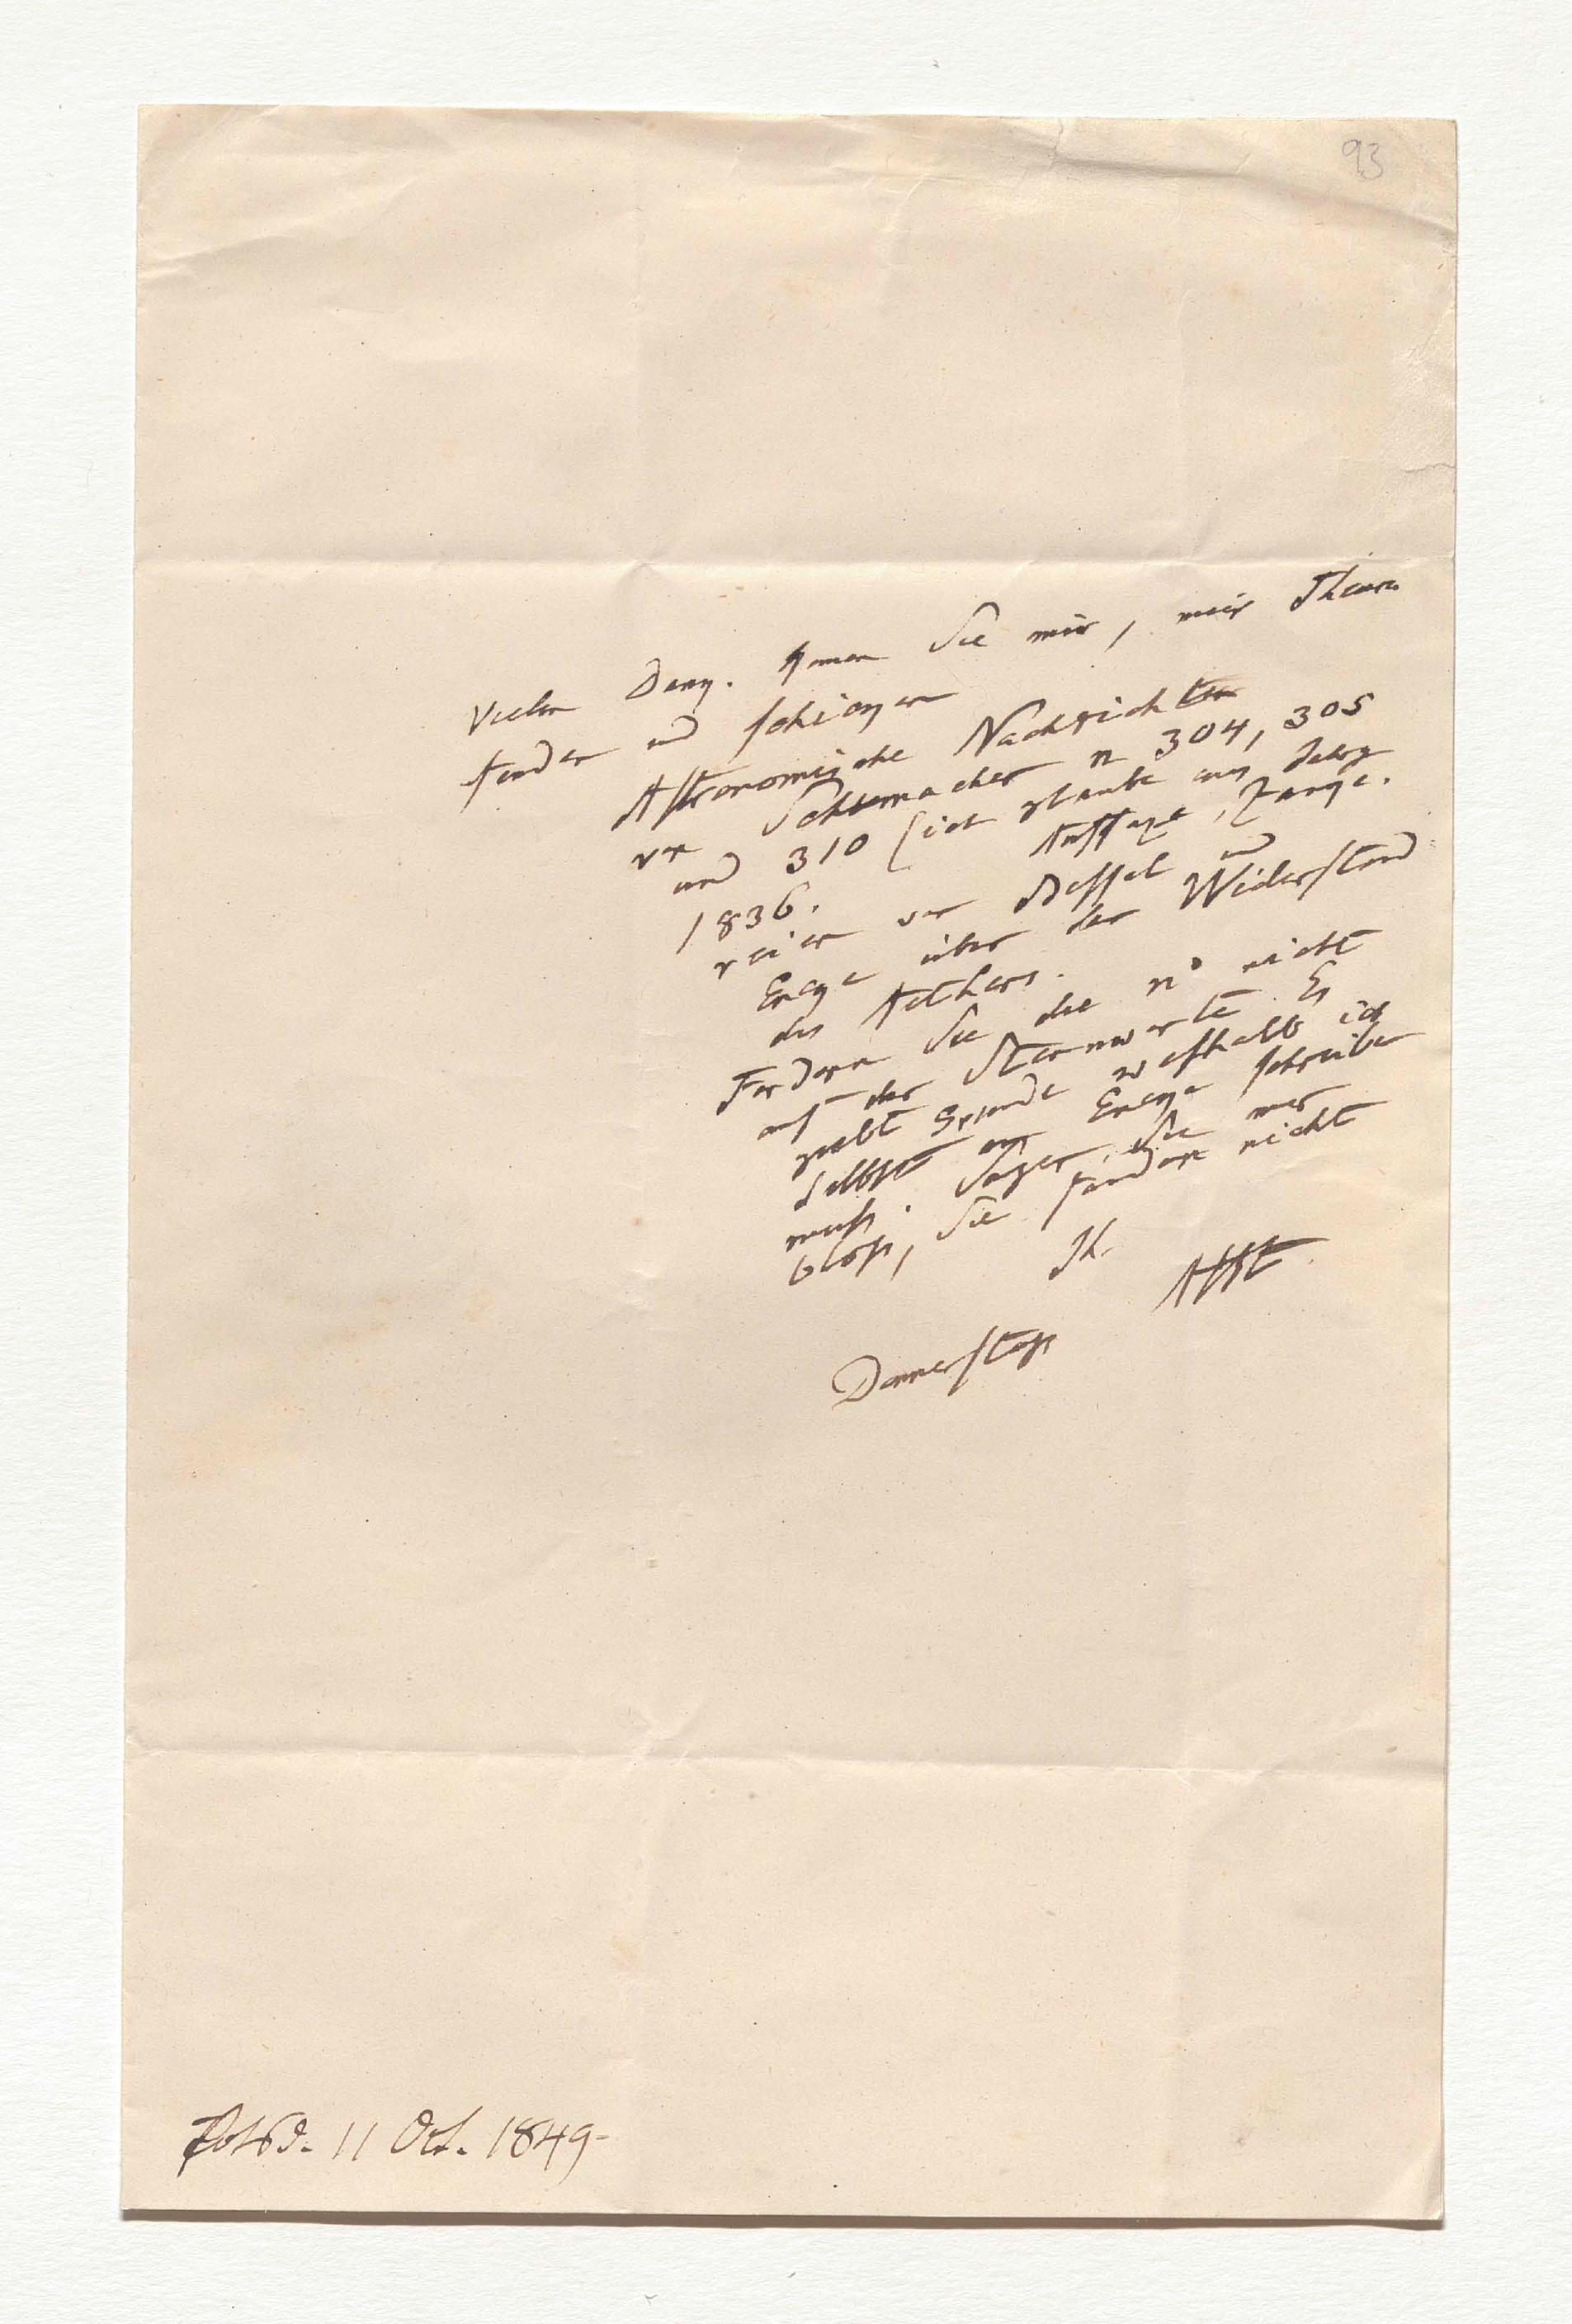 93
Vielen Dank. Können Sie mir, mein Theurer
finden und schicken
Astronomische Nachrichten
von Schumacher n 304, 305
und 310 (ich glaube aus Jahrg
1836. Aufsätze, Zänke-
reien von Bessel und
Encke über den Widerstand
des Aethers.
Fordern Sie die n° nicht
auf der Sternwarte. Es
giebt Gründe weshalb ich
selbst an Encke schreiben
muß. Sagen Sie mir
bloß, Sie fänden nicht
Ihr
AHt
Donnerstags
Potsd. 11 Oct. 1849-